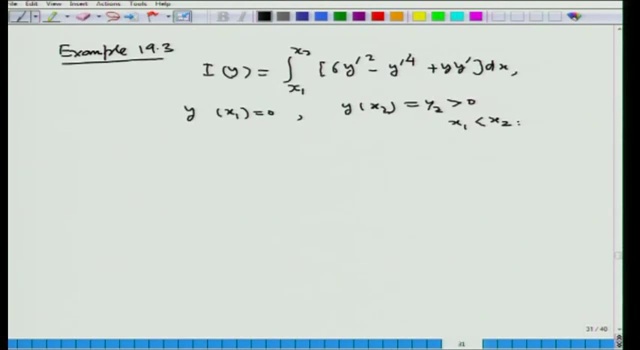 Edit View Insert Actions Tools Help
Example 19.3
I(y) = ∫_{x₁}^{x₂} [6y'² - y'⁴ + yy']dx,
y(x₁)=0, y(x₂) = y₂ > 0
x₁ < x₂ :
31 / 40
31